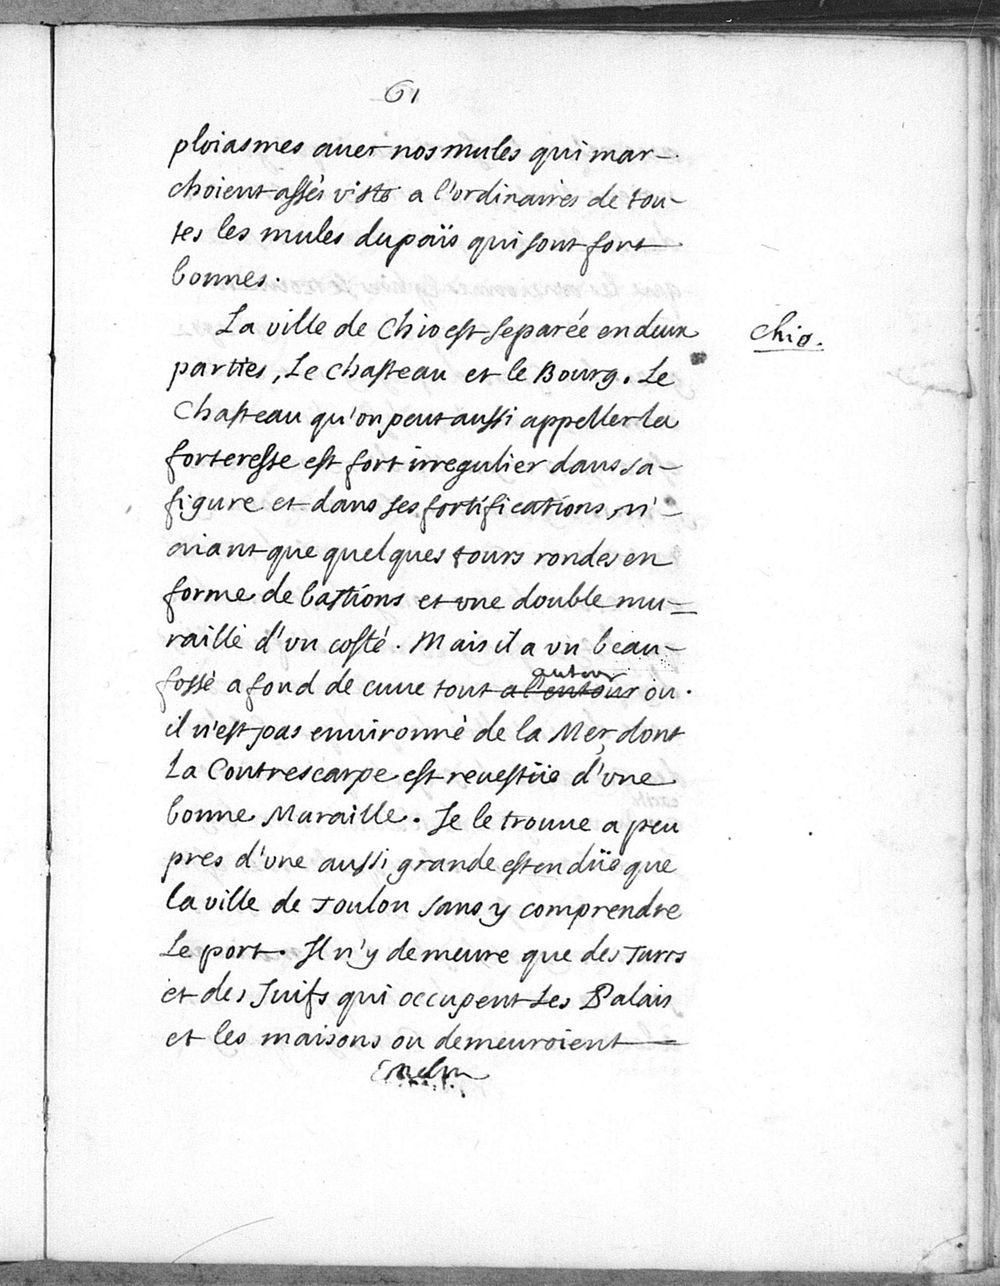 61
ploiasmes auec nos mules qui mar-
choient assés viste a l'ordinaires de tou-
tes les mules du païs qui sont fort
bonnes.
La ville de Chio est separée en deux
Chio.
parties, Le chasteau et le Bourg. Le
Chasteau qu'on peut aussi appeller la
forteresse est fort irregulier dans sa
figure et dans ses fortifications, n'-
aiant que quelques tours rondes en
forme de bastions et vne double mu-
raille d'vn costé. Mais il a vn beau
autour
fossé a fond de cuue tout a l'entour ou
il n'est pas enuironné de la Mer, dont
La Contrescarpe est reuestüe d'vne
bonne Muraille. Je le trouue a peu
pres d'vne aussi grande estendüe que
la ville de Toulon sans y comprendre
Le port. Il n'y demeure que des Turcs
et des Juifs qui occupent Les Palais
et les maisons ou demeuroient